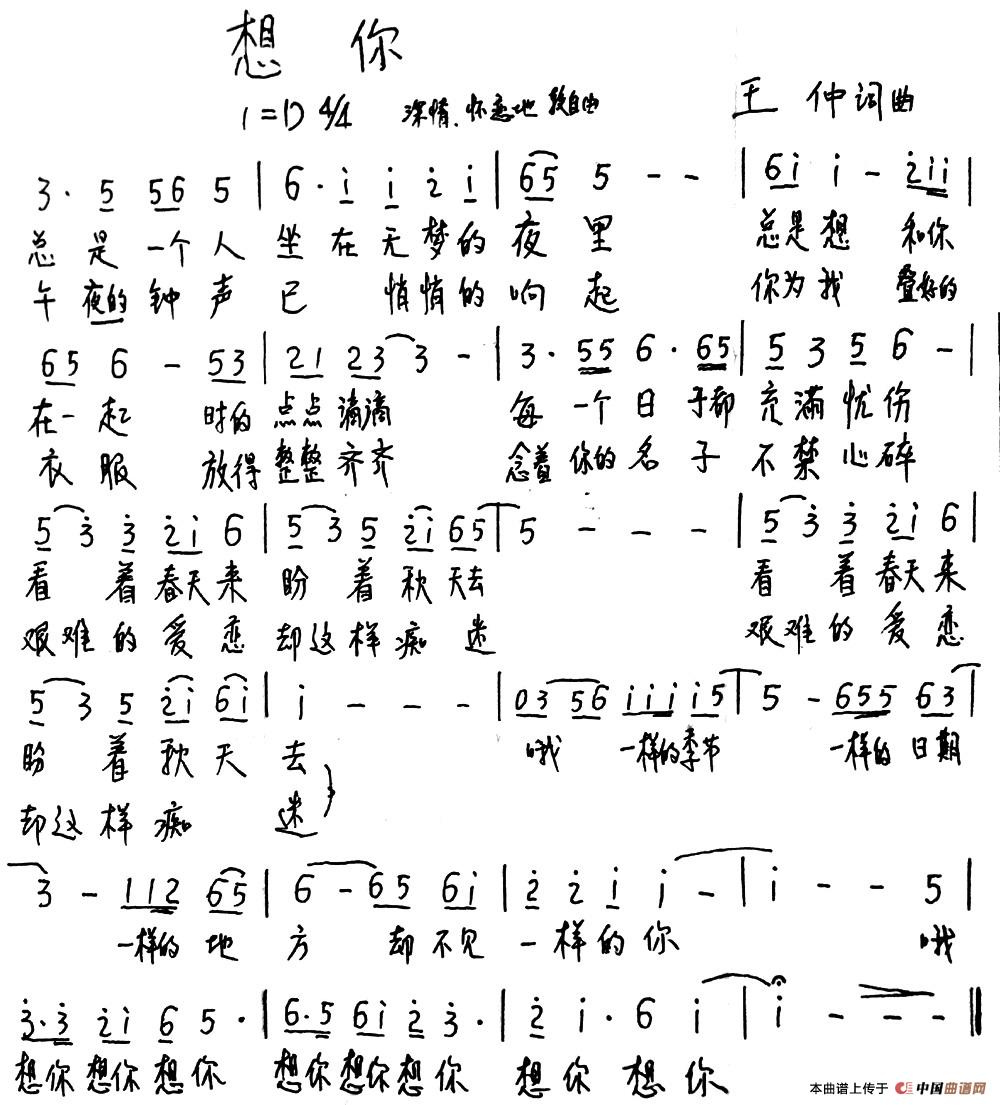 想 你
1=D 4/4 深情、怀恋地 较自由 王 仲词曲
3· 5 56 5 | 6· i̇ i̇ 2̇ i̇ | 65 5 - - | 6i̇ i̇ - 2̇i̇i̇ |
总是一个人 坐在无梦的夜里 总是想 和你
午夜的钟声已 悄悄的响起 你为我 叠好的
65 6 - 53 | 21 23 3 - | 3· 55 6· 65 | 5 3 5 6 - |
在一起 时的点点滴滴 每一个日子都充满忧伤
衣服 放得整整齐齐 念着你的名子不禁心碎
5 3̇ 3̇ 2̇i̇ 6 | 5 3 5 2̇i̇ 65 | 5 - - - | 5 3̇ 3̇ 2̇i̇ 6 |
看 着春天来 盼着秋天去 看 着春天来
艰难的爱恋 却这样痴迷 艰难的爱恋
5 3 5 2̇i̇ 6i̇ | i̇ - - - | 03 56 i̇i̇i̇ i̇5 | 5 - 655 63 |
盼着秋天去 哦 一样的季节 一样的日期
却这样痴 迷
3 - 112 65 | 6 - 65 6i̇ | 2̇ 2̇ i̇ i̇ - | i̇ - - 5 |
一样的地方 却不见一样的你 哦
3̇·3̇ 2̇i̇ 6 5· | 6·5 6i̇ 2̇ 3̇· | 2̇ i̇· 6 i̇ | i̇ - - - ‖
想你想你想你 想你想你想你 想你想你
本曲谱上传于 中国曲谱网